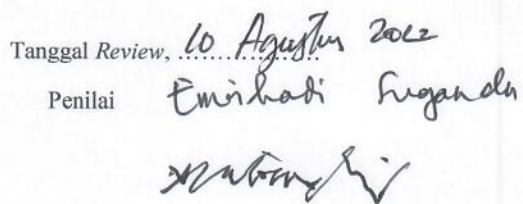 Tanggal Review, 10 Agustus 2022
Penilai Emirhadi Suganda